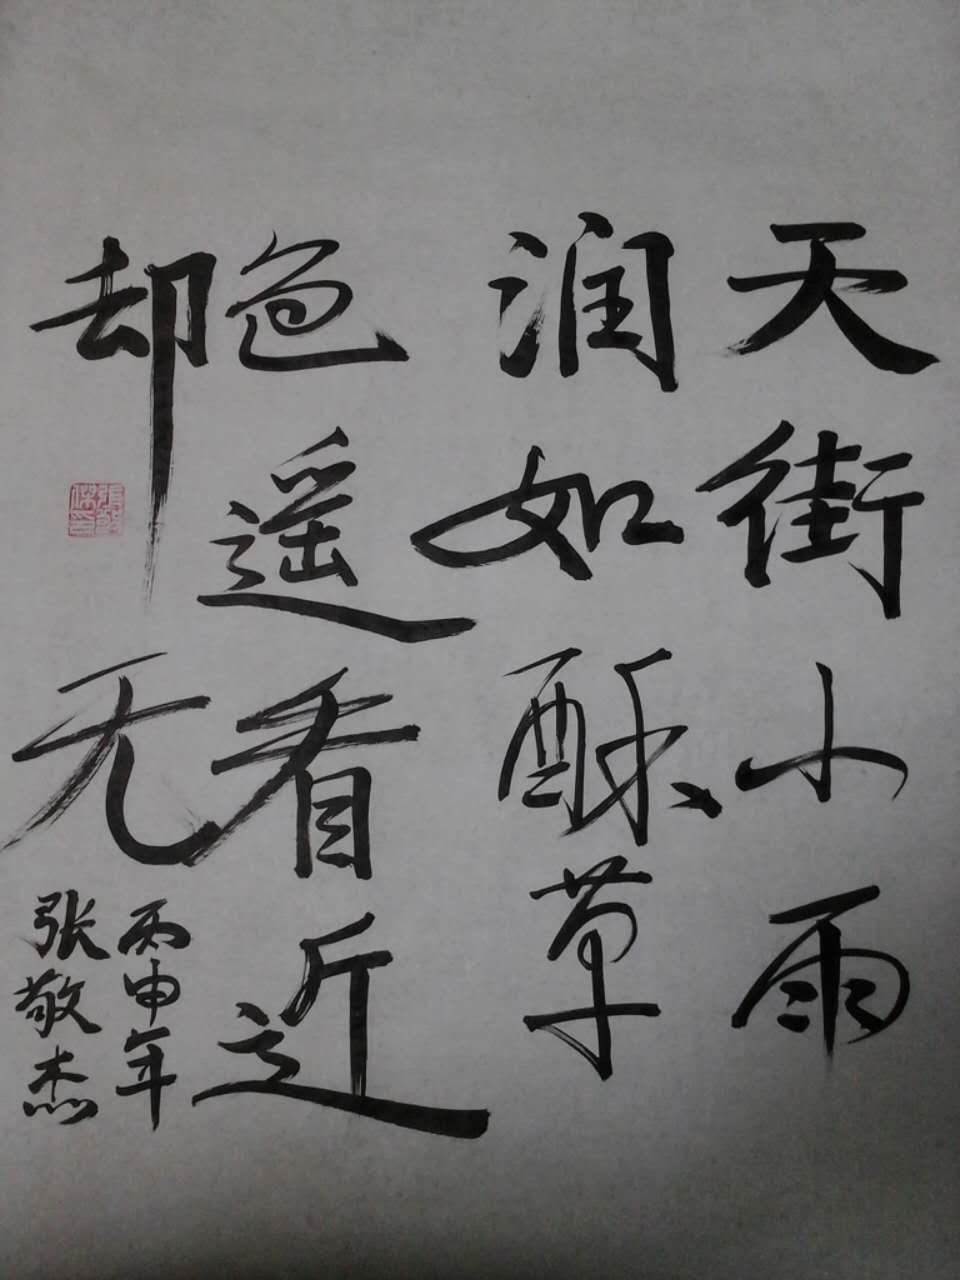 天街小雨
润如酥草
色遥看近
却无
丙申年
张敬杰